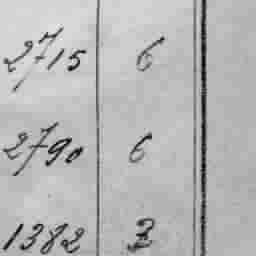 2715 6
2790 6
1382 3